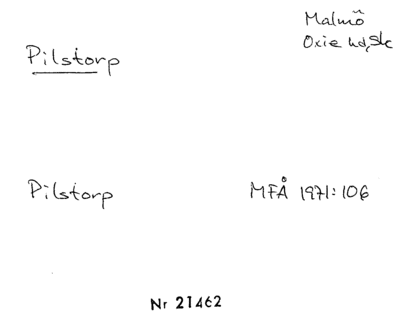 Malmö
Oxie hd, Sk
Pilstorp
Pilstorp MFÅ 1971:106
Nr 21462